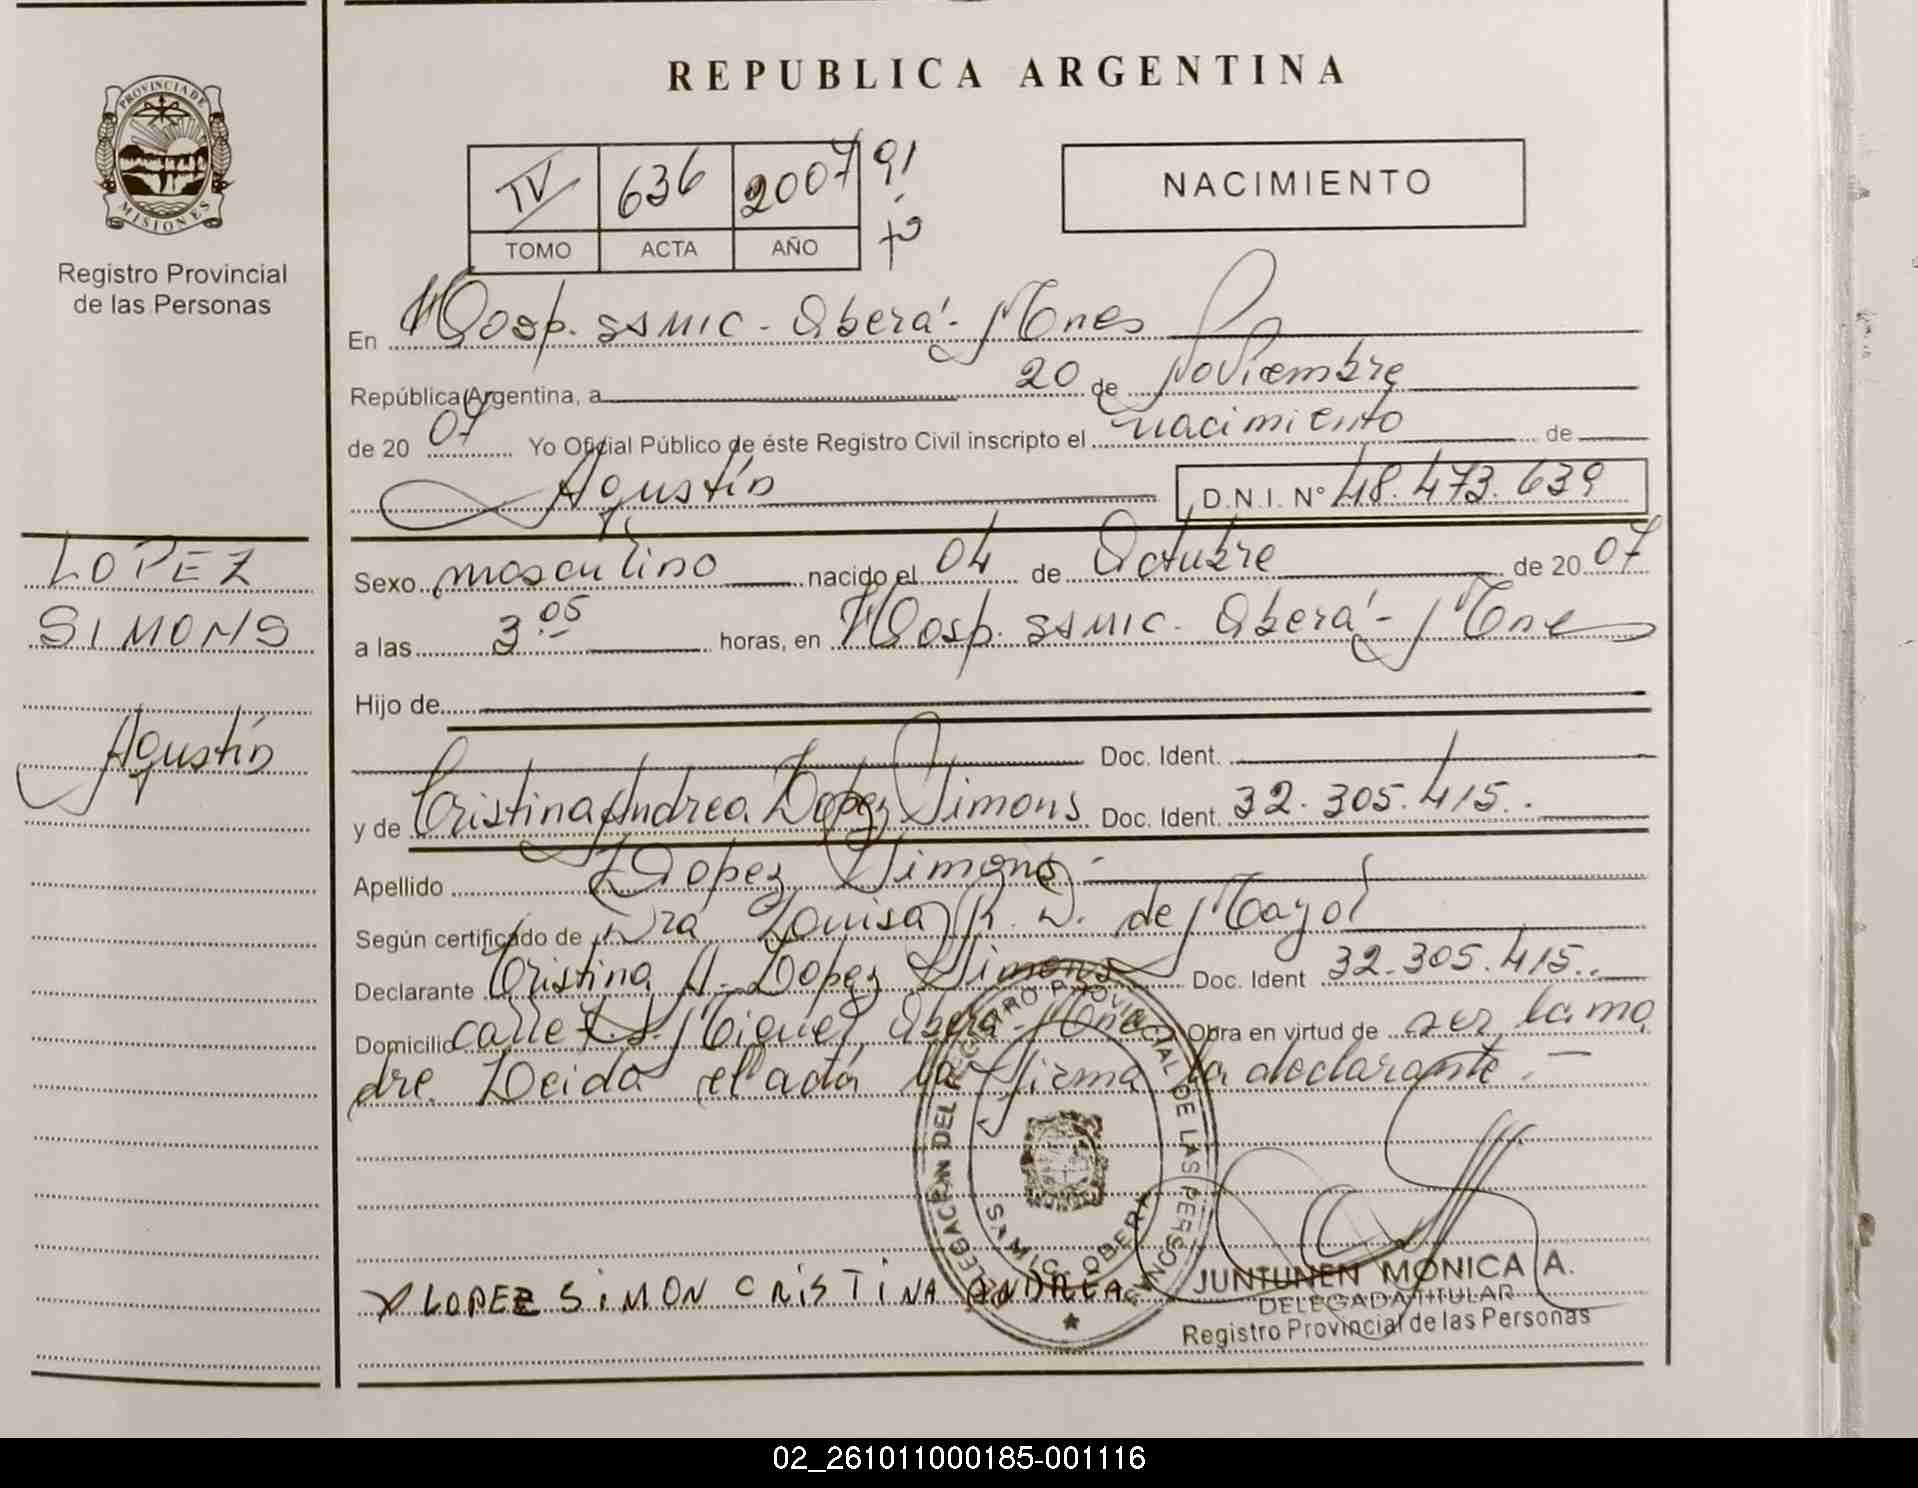 REPUBLICA ARGENTINA
PROVINCIA DE
MISIONES
Registro Provincial
de las Personas
IV 636 2007
TOMO ACTA AÑO
NACIMIENTO
En Hosp. SSMIC - Oberá - Mnes
República Argentina, a 20 de Noviembre
de 20 07 Yo Oficial Público de éste Registro Civil inscripto el nacimiento de
Agustín D.N.I. N° 48.473.639
LOPEZ
SIMONS
Agustín
Sexo masculino nacido el 04 de Octubre de 20 07
a las 3.05 horas, en Hosp. SSMIC. Oberá - Mnes
Hijo de
Doc. Ident.
y de Cristina Andrea Lopez Simons Doc. Ident. 32.305.415.
Apellido Lopez Simons -
Según certificado de Dra Louisa R. D. de Mayol
Declarante Cristina A. Lopez Simons Doc. Ident 32.305.415.
Domicilio calle Miguel Oberá - Mnes Obra en virtud de ser la ma
dre. Leida el acta la firma la declarante. -
DELEGACION DEL REGISTRO PROVINCIAL DE LAS PERSONAS
OBERA
X LOPEZ SIMON CRISTINA ANDREA
JUNTUNEN MONICA A.
DELEGADA TITULAR
Registro Provincial de las Personas
02_261011000185-001116